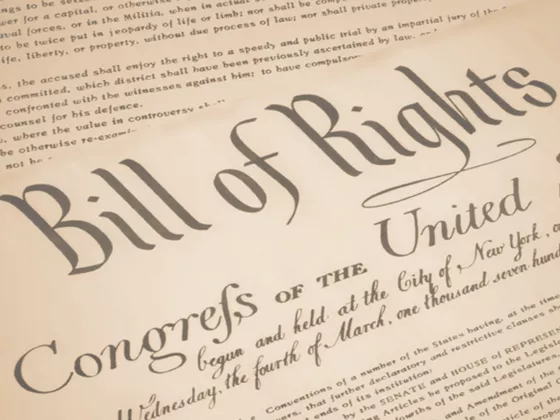 ngs to be seized.
wer for a capital, or otherwise
aval forces, or in the Militia, when in actual
to be twice put in jeopardy of life or limb; nor shall be compe
ife, liberty, or property, without due process of law; nor shall private property
s, the accused shall enjoy the right to a speedy and public trial by an impartial jury of the
committed, which district shall have been previously ascertained by law, and
confronted with the witnesses against him; to have compulsor
counsel for his defence.
, where the value in controversy sh
be otherwise re-exami
not be
Bill of Rights
Congreſs OF THE United
begun and held at the City of New York, o
Wednesday, the fourth of March, one thousand seven hund
Conventions of a number of the States having, at the time
ers, that further declaratory and restrictive clauses sh
ends of its institution:
by the SENATE and HOUSE of REPRESEN
Articles be proposed to the Legisl
of the said Legislatu
Amendment of the
the Original